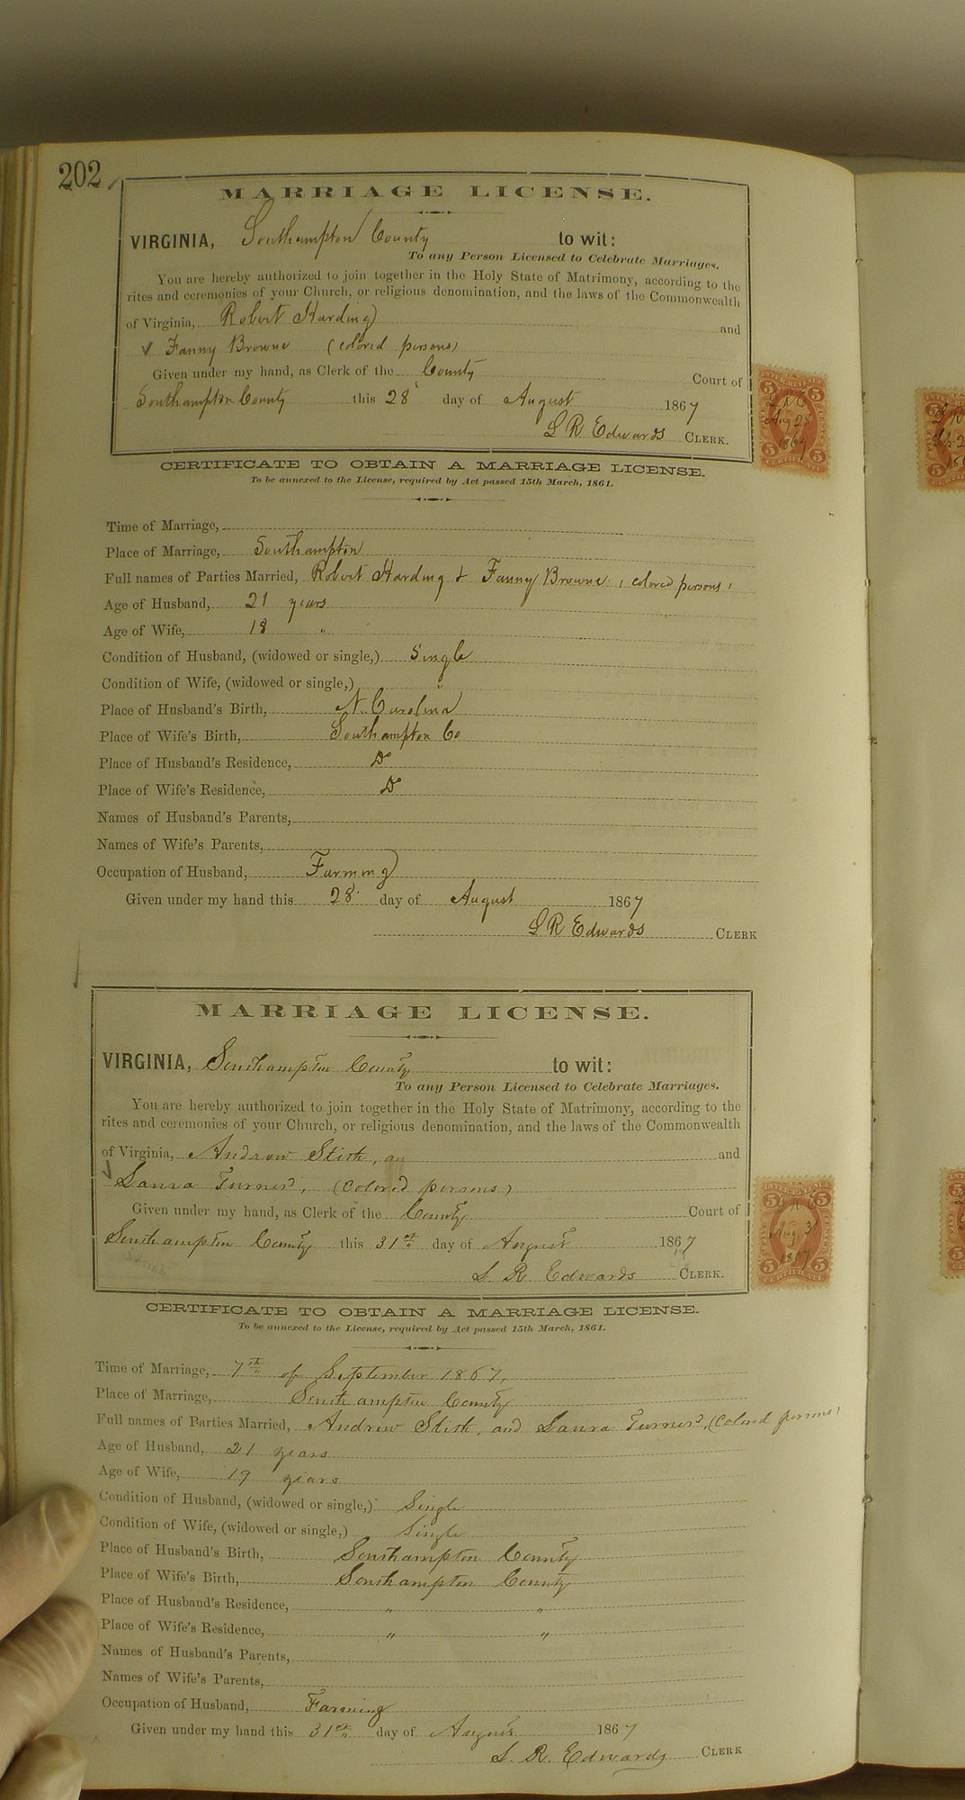 202
MARRIAGE LICENSE.
VIRGINIA, Southampton County to wit:
To any Person Licensed to Celebrate Marriages.
You are hereby authorized to join together in the Holy State of Matrimony, according to the
rites and ceremonies of your Church, or religious denomination, and the laws of the Commonwealth
of Virginia, Robert Harding and
✓ Fanny Browne (colored persons)
Given under my hand, as Clerk of the County Court of
Southampton County this 28 day of August 1867
L R Edwards CLERK.
CERTIFICATE TO OBTAIN A MARRIAGE LICENSE.
To be annexed to the License, required by Act passed 15th March, 1861.
Time of Marriage,
Place of Marriage, Southampton
Full names of Parties Married, Robert Harding & Fanny Browne (colored persons)
Age of Husband, 21 years
Age of Wife, 18 "
Condition of Husband, (widowed or single,) Single
Condition of Wife, (widowed or single,) "
Place of Husband's Birth, N. Carolina
Place of Wife's Birth, Southampton Co
Place of Husband's Residence, Do
Place of Wife's Residence, Do
Names of Husband's Parents,
Names of Wife's Parents,
Occupation of Husband, Farming
Given under my hand this 28 day of August 1867
L R Edwards CLERK
MARRIAGE LICENSE.
VIRGINIA, Southampton County to wit:
To any Person Licensed to Celebrate Marriages.
You are hereby authorized to join together in the Holy State of Matrimony, according to the
rites and ceremonies of your Church, or religious denomination, and the laws of the Commonwealth
of Virginia, Andrew Stith, an and
✓ Laura Turner, (colored persons)
Given under my hand, as Clerk of the County Court of
Southampton County this 31st day of August 1867
L. R. Edwards CLERK.
CERTIFICATE TO OBTAIN A MARRIAGE LICENSE.
To be annexed to the License, required by Act passed 15th March, 1861.
Time of Marriage, 7th of September 1867.
Place of Marriage, Southampton County
Full names of Parties Married, Andrew Stith, and Laura Turner, (colored persons)
Age of Husband, 21 years
Age of Wife, 19 years
Condition of Husband, (widowed or single,) Single
Condition of Wife, (widowed or single,) Single
Place of Husband's Birth, Southampton County
Place of Wife's Birth, Southampton County
Place of Husband's Residence, " "
Place of Wife's Residence, " "
Names of Husband's Parents,
Names of Wife's Parents,
Occupation of Husband, Farming
Given under my hand this 31st day of August 1867
L. R. Edwards CLERK